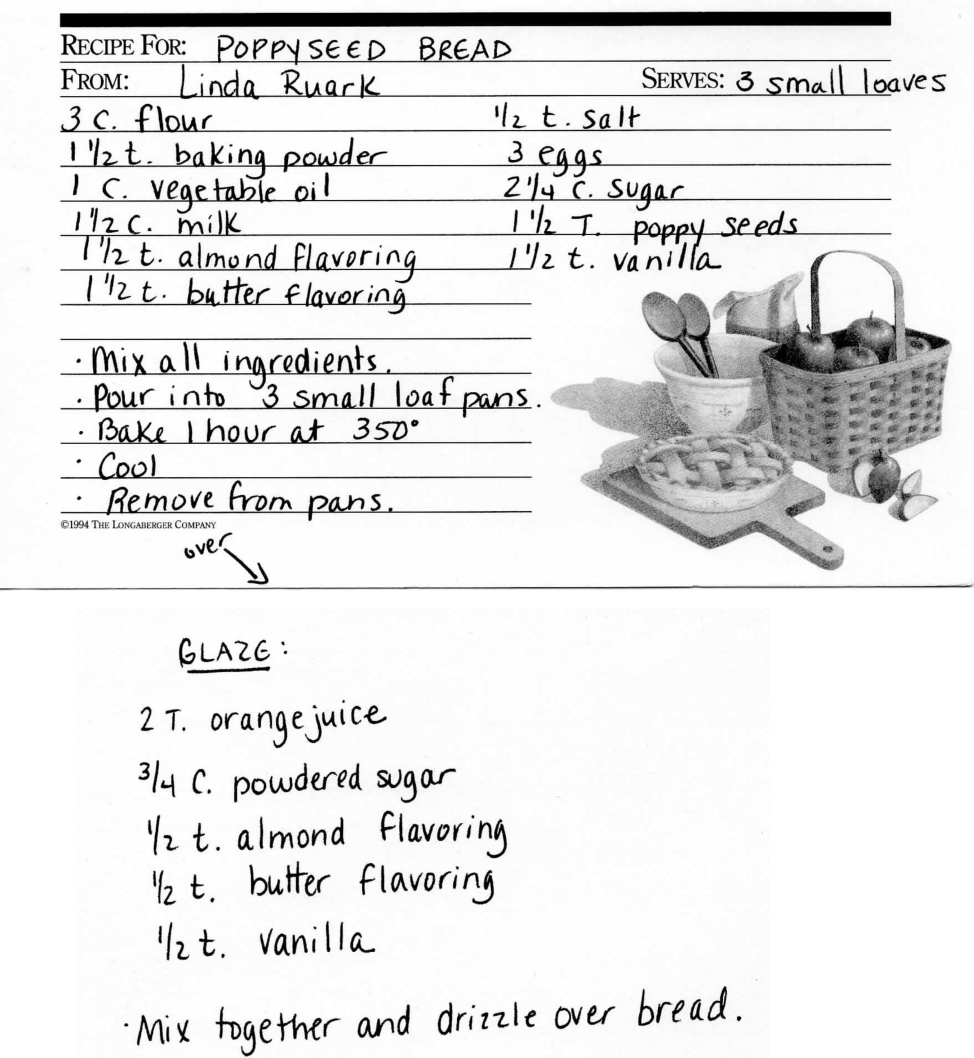 RECIPE FOR: POPPYSEED BREAD
FROM: Linda Ruark SERVES: 3 small loaves
3 C. flour 1/2 t. salt
1 1/2 t. baking powder 3 eggs
1 C. vegetable oil 2 1/4 C. sugar
1 1/2 C. milk 1 1/2 T. poppy seeds
1 1/2 t. almond flavoring 1 1/2 t. vanilla
1 1/2 t. butter flavoring
· Mix all ingredients.
· Pour into 3 small loaf pans.
· Bake 1 hour at 350°
· Cool
· Remove from pans.
©1994 THE LONGABERGER COMPANY
over
GLAZE:
2 T. orange juice
3/4 C. powdered sugar
1/2 t. almond flavoring
1/2 t. butter flavoring
1/2 t. vanilla
· Mix together and drizzle over bread.